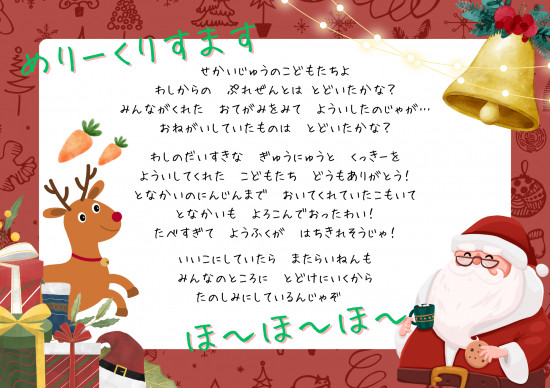 めりーくりすます
せかいじゅうのこどもたちよ
わしからの　ぷれぜんとは　とどいたかな？
みんながくれた　おてがみをみて　よういしたのじゃが…
おねがいしていたものは　とどいたかな？
わしのだいすきな　ぎゅうにゅうと　くっきーを
よういしてくれた　こどもたち　どうもありがとう！
となかいのにんじんまで　おいてくれていたこもいて
となかいも　よろこんでおったわい！
たべすぎて　ようふくが　はちきれそうじゃ！
いいこにしていたら　またらいねんも
みんなのところに　とどけにいくから
たのしみにしているんじゃぞ
ほ～ほ～ほ～